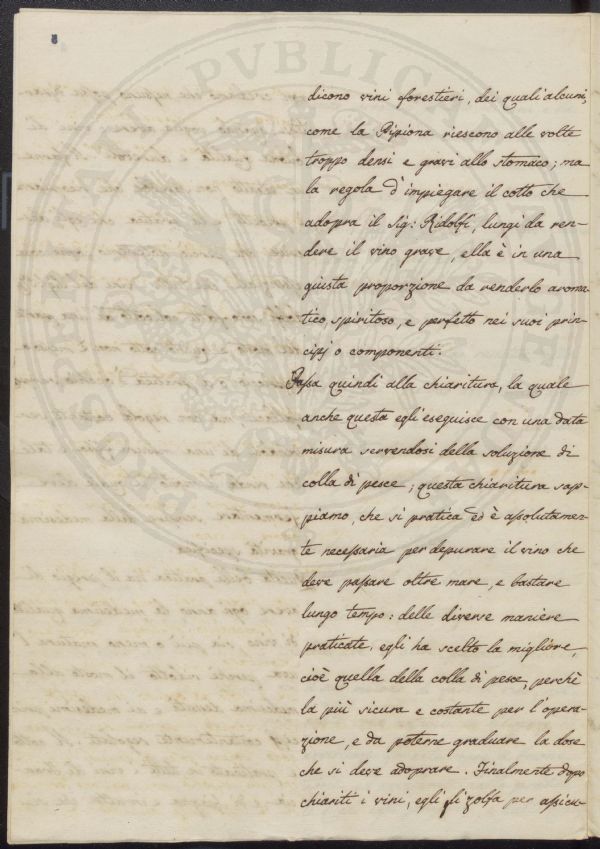 dicono vini forestieri, dei quali alcuni,
come la Pipiona riescono alle volte
troppo densi e gravi allo stomaco; ma
la regola d'impiegare il cotto che
adopra il Sig: Ridolfi, lungi da ren-
dere il vino grave, ella è in una
giusta proporzione da renderlo aroma
tico, spiritoso, e perfetto nei suoi prin-
cipj o componenti.
Passa quindi alla chiaritura, la quale
anche questa egli eseguisce con una data
misura servendosi della soluzione di
colla di pesce; questa chiaritura sap-
piamo, che si pratica ed è assolutamen-
te necessaria per depurare il vino che
deve passare oltre mare, e bastare
lungo tempo: delle diverse maniere
praticate, egli ha scelto la migliore,
cioè quella della colla di pesce, perchè
la più sicura e costante per l'opera-
zione, e da poterne graduare la dose
che si deve adoprare. Finalmente dopo
chiariti i vini, egli li zolfa per assicu-